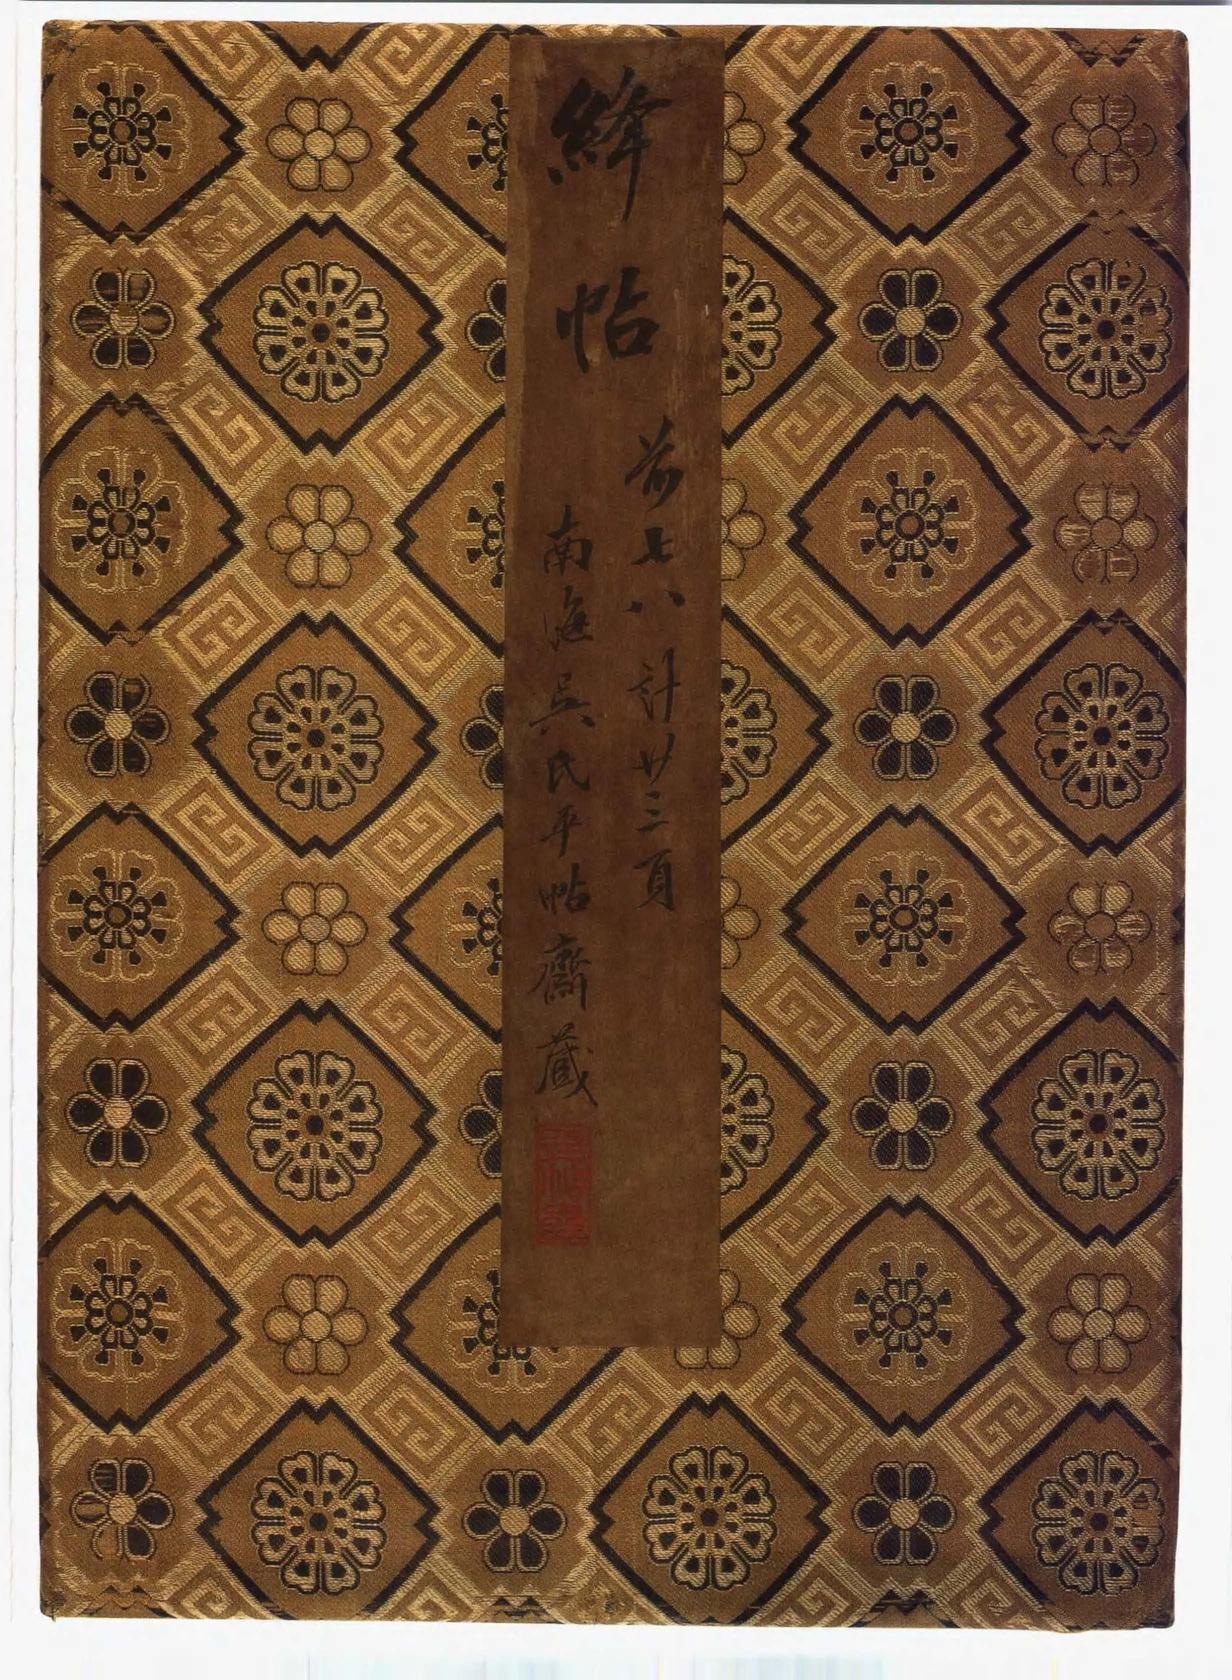 絳帖
前七八計廿三頁
南海吳氏平帖齋藏